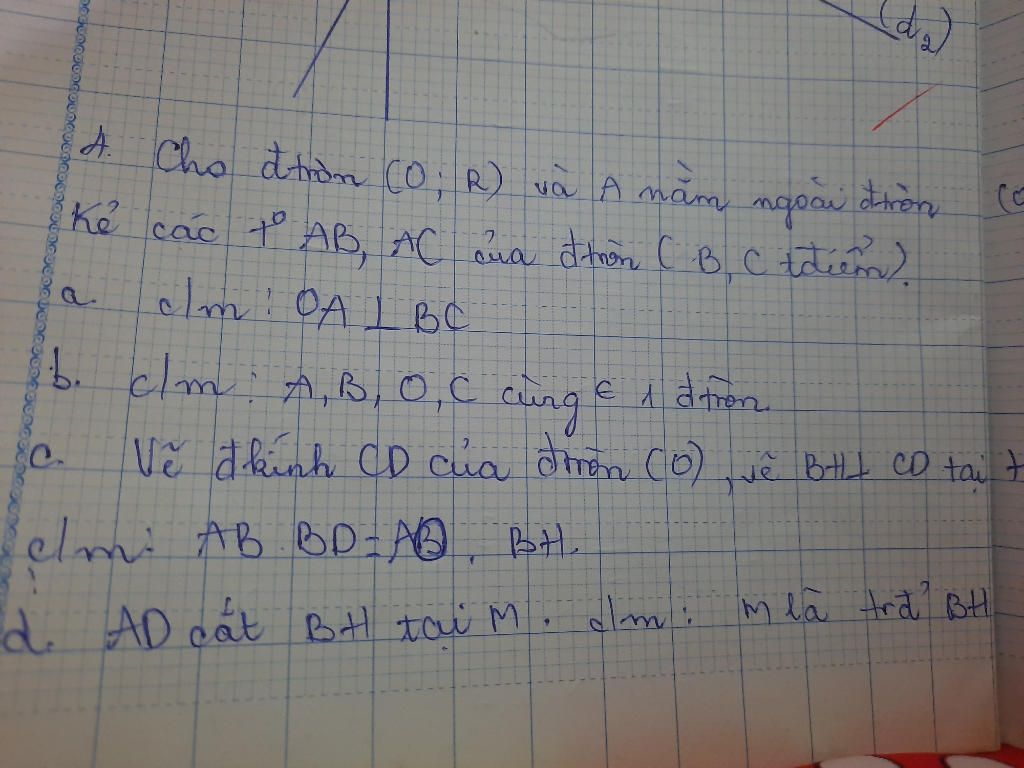 (d2)
4. Cho đtròn (O; R) và A nằm ngoài đtròn
Kẻ các t² AB, AC của đtròn (B, C tđiểm).
a. c/m: OA ⊥ BC
b. c/m: A, B, O, C cùng ∈ 1 đtròn
c. Vẽ đkính CD của đtròn (O), vẽ BH ⊥ CD tại
c/m: AB . BD = AO . BH.
d. AD cắt BH tại M. c/m: M là trđ² BH